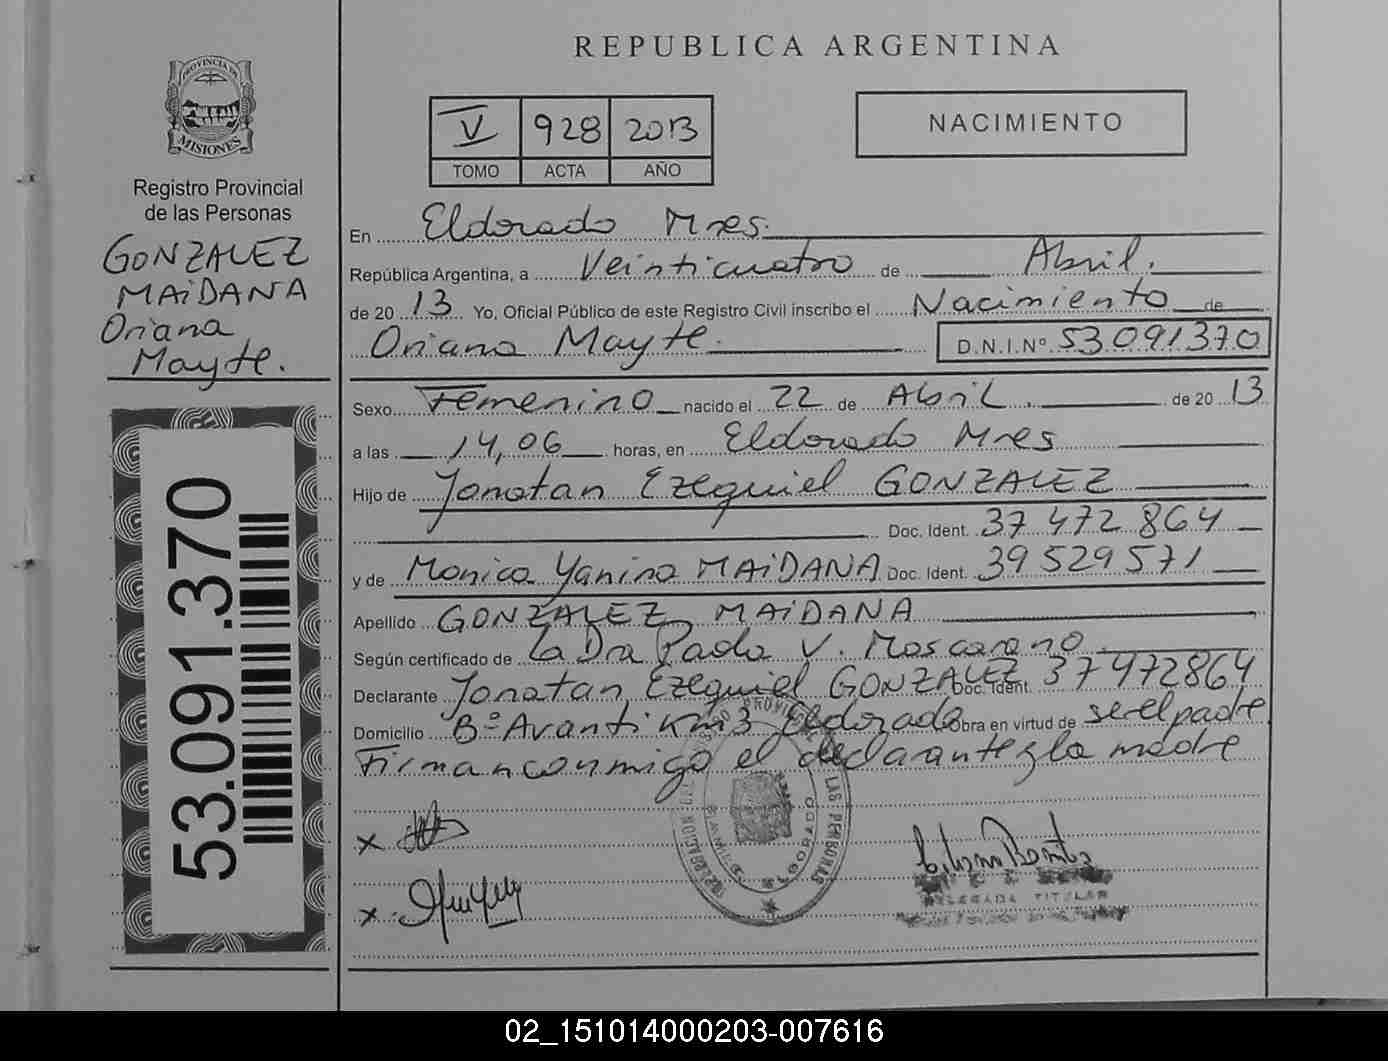 REPUBLICA ARGENTINA
PROVINCIA DE
MISIONES
Registro Provincial
de las Personas
GONZALEZ
MAiDANA
Oriana
Mayte.
53.091.370
V 928 2013
TOMO ACTA AÑO
NACIMIENTO
En Eldorado Mnes.
República Argentina, a Veinticuatro de Abril.
de 20 13 Yo, Oficial Público de este Registro Civil inscribo el Nacimiento de
Oriana Mayte. D.N.I.Nº 53.091.370
Sexo Femenino nacido el 22 de Abril. de 20 13
a las 14,06 horas, en Eldorado Mnes
Hijo de Jonatan Ezequiel GONZALEZ
Doc. Ident. 37 472 864
y de Monica Yanina MAiDANA Doc. Ident. 39 529 571
Apellido GONZALEZ MAiDANA
Según certificado de La Dra Paola V. Moscarano
Declarante Jonatan Ezequiel GONZALEZ Doc. Ident. 37472864
Domicilio Bº Avanti Km3 Eldorado Obra en virtud de ser el padre
Firman conmigo el declarante y la madre
LAS PERSONAS
ELDORADO
x
x
DELEGADA TITULAR
02_151014000203-007616